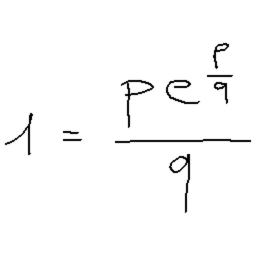 1 = \frac{p e^{\frac{p}{q}}}{q}